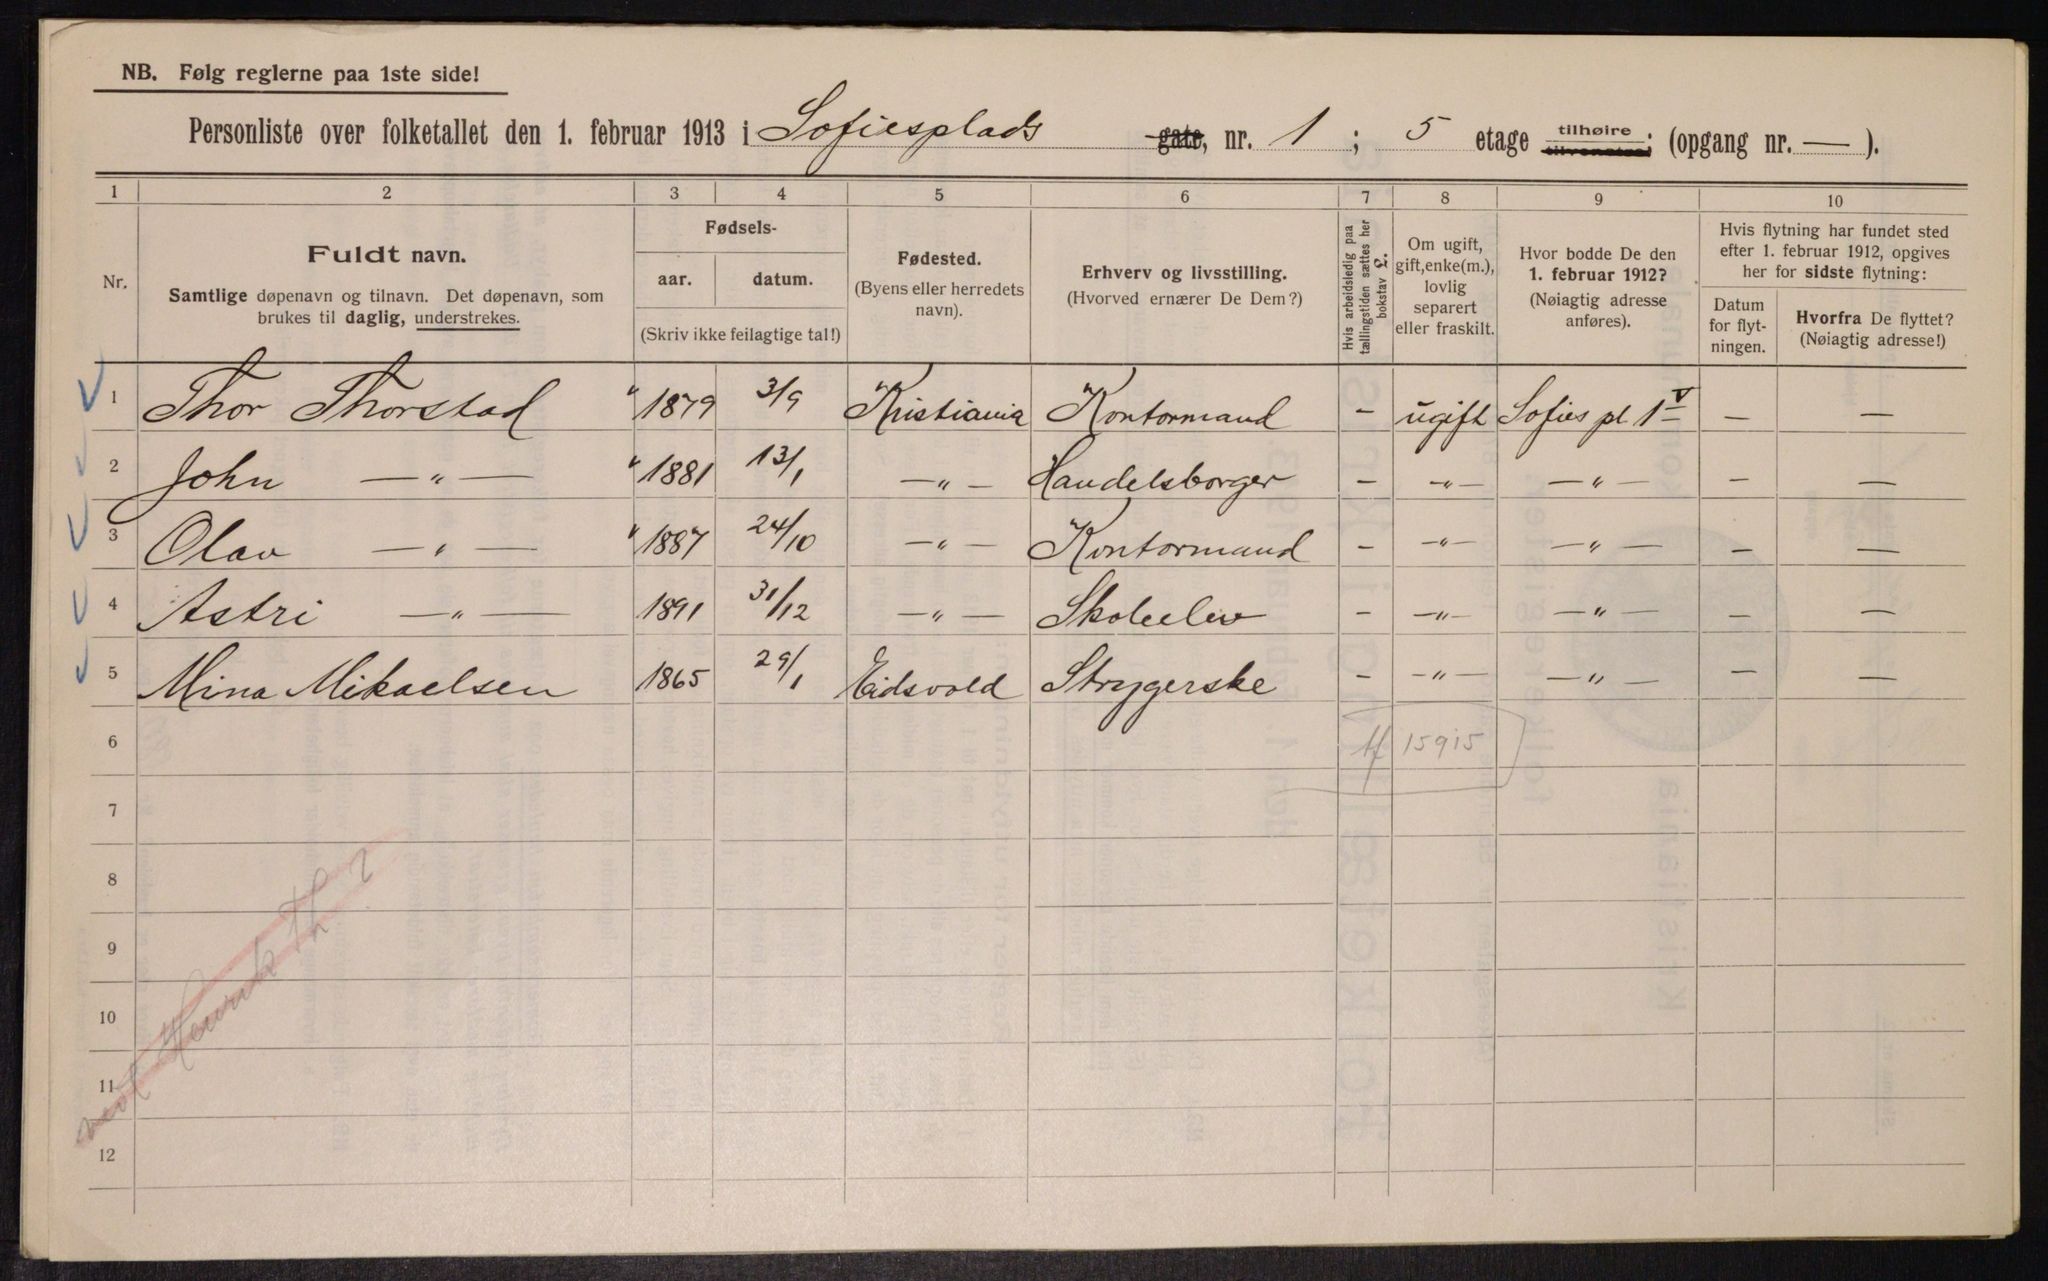 NB. Følg reglerne paa 1ste side!
Personliste over folketallet den 1. februar 1913 i Sofiesplads gate, nr. 1 ; 5 etage tilhøire tilvenstre; (opgang nr. — ).
1 2 3 4 5 6 7 8 9 10
Nr.
Fuldt navn.
Samtlige døpenavn og tilnavn. Det døpenavn, som
brukes til daglig, understrekes.
Fødsels-
aar. datum.
(Skriv ikke feilagtige tal!)
Fødested.
(Byens eller herredets
navn).
Erhverv og livsstilling.
(Hvorved ernærer De Dem?)
Hvis arbeidsledig paa
tællingstiden sættes her
bokstav L.
Om ugift,
gift, enke(m.),
lovlig
separert
eller fraskilt.
Hvor bodde De den
1. februar 1912?
(Nøiagtig adresse
anføres).
Hvis flytning har fundet sted
efter 1. februar 1912, opgives
her for sidste flytning:
Datum
for flyt-
ningen.
Hvorfra De flyttet?
(Nøiagtig adresse!)
1 Thor Thorstad " 1879 3/9 Kristiania Kontormand – ugift Sofies pl 1 V — —
2 John —"— " 1881 13/1 —"— Handelsborger – —"— —"— — —
3 Olav —"— " 1887 24/10 —"— Kontormand – —"— —"— — —
4 Astri —"— 1891 31/12 —"— Skoleelev – —"— —"— — —
5 Mina Mikaelsen 1865 29/1 Eidsvold Strygerske – —"— —"— — —
6 15915
7
8
9
10
11
12
Henrik Th